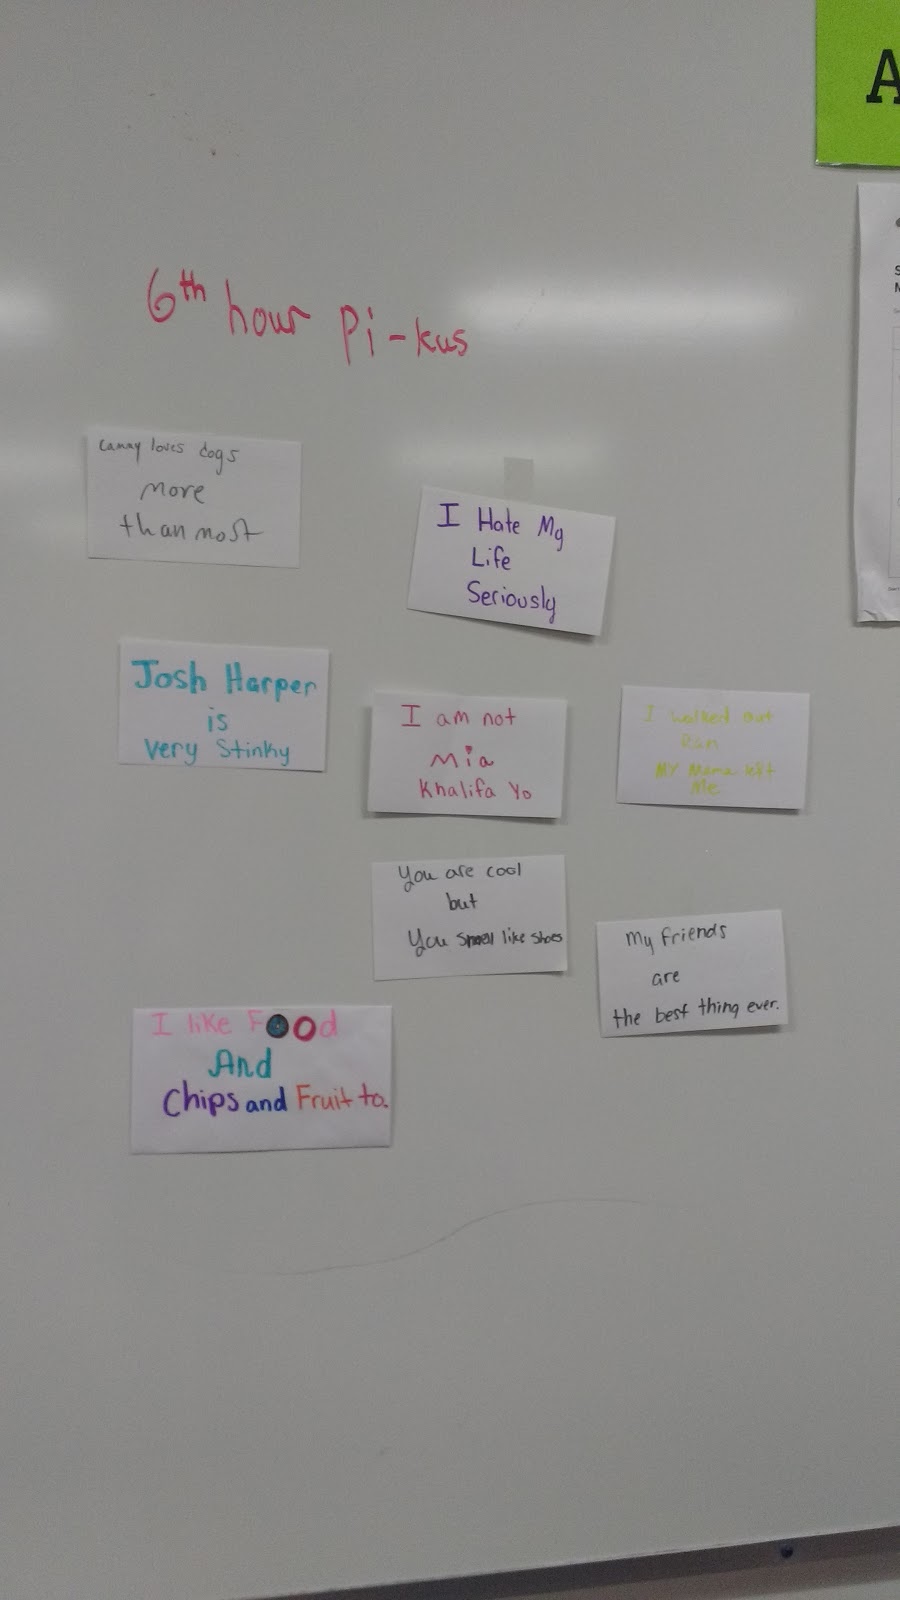 A
6th hour Pi-kus
loves dogs
more
than most
I Hate My
Life
Seriously
Josh Harper
is
Very Stinky
I am not
Mia
Khalifa Yo
I walked out
Ran
MY Mama left
Me
You are cool
but
You smell like shoes
My friends
are
the best thing ever.
I like Food
And
Chips and Fruit to.